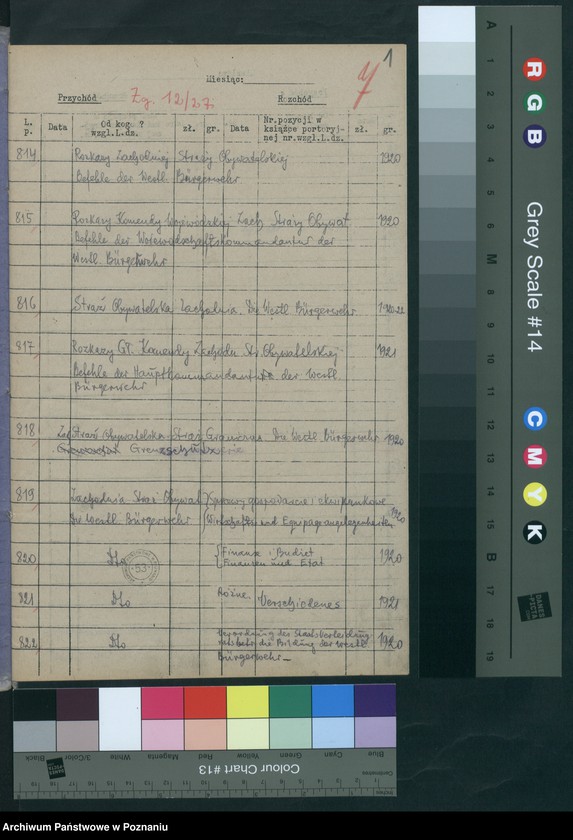 1
Miesiąc:
Przychód
Zg. 12/27
Rozchód
L. p.
Data
Od kog. ? wzgl.L.dz.
zł.
gr.
Data
Nr.pozycji w książce portoryjnej nr.wzgl.L.dz.
zł.
gr.
814 Rozkazy Zachodniej Straży Obywatelskiej 1920
Befehle der Westl. Bürgerwehr
815 Rozkazy Komendy Wojewódzkiej Zach. Straży Obywat. 1920
Befehle der Woiewodschaftskommandantur der
Westl. Bürgerwehr
816 Straż Obywatelska Zachodnia. Die Westl Bürgerwehr
817 Rozkazy Gł. Komendy Zachodn. Str. Obywatelskiej 1921
Befehle der Hauptkommandantur der Westl.
Bürgerwehr
818 Straż Obywatelska - Straż Graniczna Die Westl Bürgerwehr 1920
Grenzschutz
819 Zachodnia Straż Obywat. Sprawy gospodarcze i ekwipunkowe
Die Westl Bürgerwehr Wirtschafts und Equipageangelegenheiten 1920
820 Dto Finanse i Budżet 1920
Finanzen und Etat
53
821 Dto Różne. Verschiedenes 1921
822 Dto Verordnung der 1920
die Bildung der Westl
Bürgerwehr
A
1
2
3
4
5
6
M
8
9
10
11
12
13
14
15
B
17
18
19
R
G
B
Grey Scale #14
C
M
Y
K
DANES PICTA
Blue
Cyan
Green
Yellow
Red
Magenta
White
3/Color
Black
Colour Chart #13
DANES PICTA
Centimetres
Inches
Archiwum Państwowe w Poznaniu